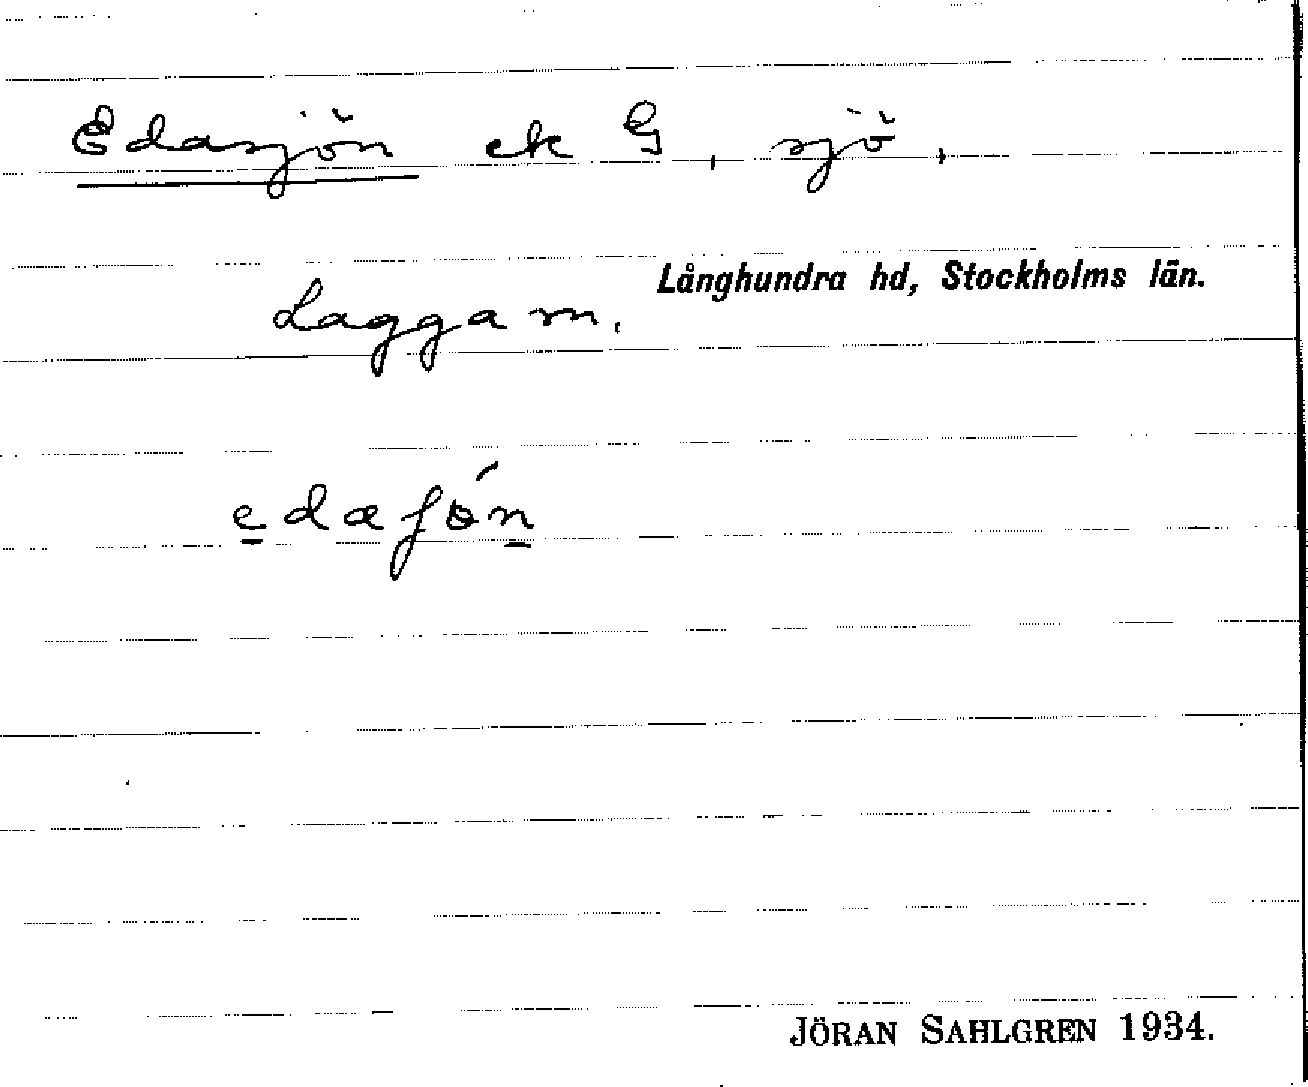 Edasjön ek G, sjö,
Långhundra hd, Stockholms län.
Lagga sn.
edaʃǿn
JÖRAN SAHLGREN 1934.